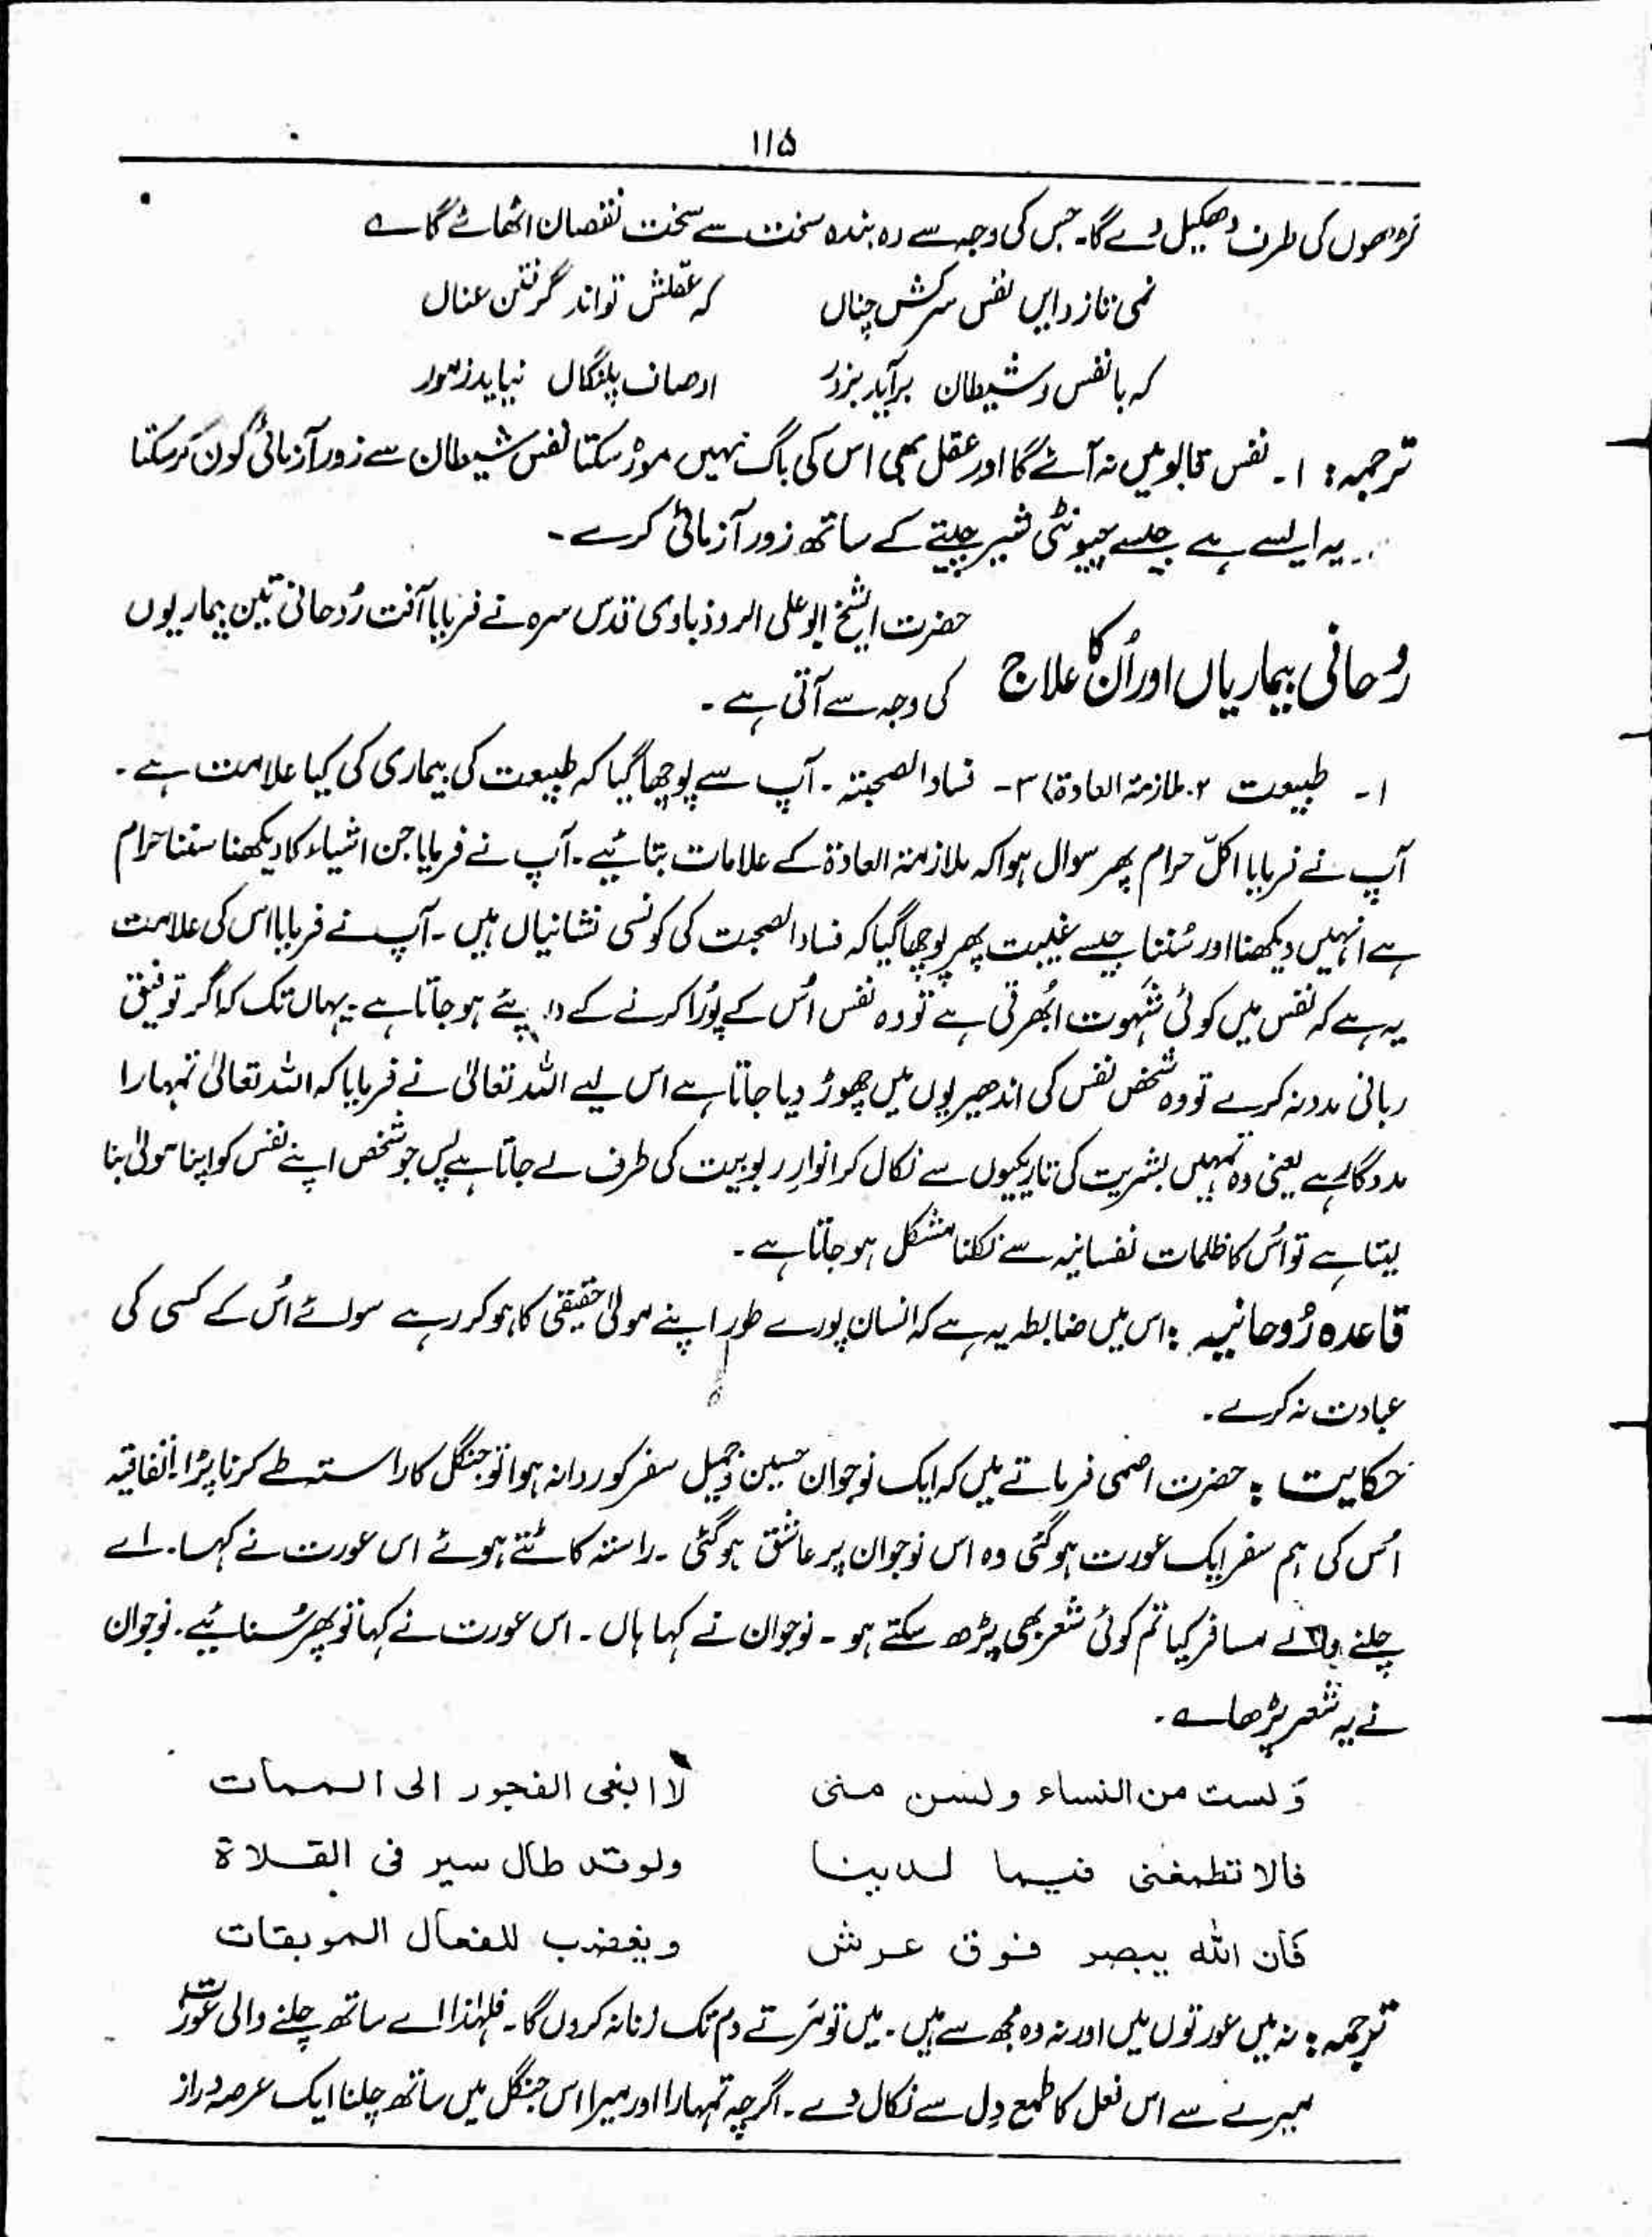 ۱۱۵
گڑھوں کی طرف دھکیل دے گا۔ جس کی وجہ سے وہ بندہ سخت سے سخت نقصان اٹھائے گا ے
نمی تازد ایں نفس سرکش چناں کہ عقلش تواند گرفتن عناں
کہ با نفس و شیطان برآید بزور اوصاف پلنگاں نیاید زمور
ترجمہ: ۱۔ نفس قابو میں نہ آئے گا اور عقل بھی اس کی باگ نہیں موڑ سکتا نفس شیطان سے زور آزمائی کون کر سکتا
یہ ایسے ہے جیسے چیونٹی شیر چیتے کے ساتھ زور آزمائی کرے۔
رُوحانی بیماریاں اور اُن کا علاج حضرت الشیخ ابو علی الروذباوی قدس سرہ نے فرمایا آفت رُوحانی تین بیماریوں
کی وجہ سے آتی ہے۔
۱۔ طبیعت ۲۔ ملازمۃ العادۃ) ۳۔ فساد الصحبتہ۔ آپ سے پوچھا گیا کہ طبیعت کی بیماری کی کیا علامت ہے۔
آپ نے فرمایا اکل حرام پھر سوال ہوا کہ ملازمتہ العادۃ کے علامات بتائیے۔ آپ نے فرمایا جن اشیاء کا دیکھنا سننا حرام
ہے انہیں دیکھنا اور سُننا جیسے غیبت پھر پوچھا گیا کہ فساد الصحبت کی کونسی نشانیاں ہیں۔ آپ نے فرمایا اس کی علامت
یہ ہے کہ نفس میں کوئی شہوت اُبھرتی ہے تو وہ نفس اُس کے پُورا کرنے کے در پئے ہو جاتا ہے۔ یہاں تک کہ اگر توفیق
ربانی مدد نہ کرے تو وہ شخص نفس کی اندھیریوں میں چھوڑ دیا جاتا ہے اس لیے اللہ تعالیٰ نے فرمایا کہ اللہ تعالیٰ تمہارا
مددگار ہے یعنی وہ تمہیں بشریت کی تاریکیوں سے نکال کر انوارِ ربوبیت کی طرف لے جاتا ہے پس جو شخص اپنے نفس کو اپنا مولیٰ بنا
لیتا ہے تو اُس کا ظلمات نفسانیہ سے نکلنا مشکل ہو جاتا ہے۔
قاعدہ رُوحانیہ: اس میں ضابطہ یہ ہے کہ انسان پورے طور اپنے مولیٰ حقیقی کا ہو کر رہے سوائے اُس کے کسی کی
عبادت نہ کرے۔
حکایت: حضرت اصمی فرماتے ہیں کہ ایک نوجوان حسین و جمیل سفر کو روانہ ہوا تو جنگل کا راستہ طے کرنا پڑا۔ اتفاقیہ
اُس کی ہم سفر ایک عورت ہو گئی وہ اس نوجوان پر عاشق ہو گئی۔ راستہ کاٹتے ہوئے اس عورت نے کہا۔ اے
چلنے والے مسافر کیا تم کوئی شعر بھی پڑھ سکتے ہو۔ نوجوان نے کہا ہاں۔ اس عورت نے کہا تو پھر سُنائیے۔ نوجوان
نے یہ شعر پڑھا ے۔
وَلست من النساء ولسن منی لا ابغی الفجور الی الممات
فالا تطمغنی فیما لدینا ولوقد طال سیر فی القلاۃ
فَان اللہ یبصر فوق عرش ویغضب للفعال الموبقات
ترجمہ: نہ میں عورتوں میں اور نہ وہ مجھ سے ہیں۔ میں تو مَرتے دم تک زنا نہ کروں گا۔ فلہٰذا اے ساتھ چلنے والی عورت
میرے سے اس فعل کا طمع دِل سے نکال دے۔ اگرچہ تمہارا اور میرا اس جنگل میں ساتھ چلنا ایک عرصہ دراز